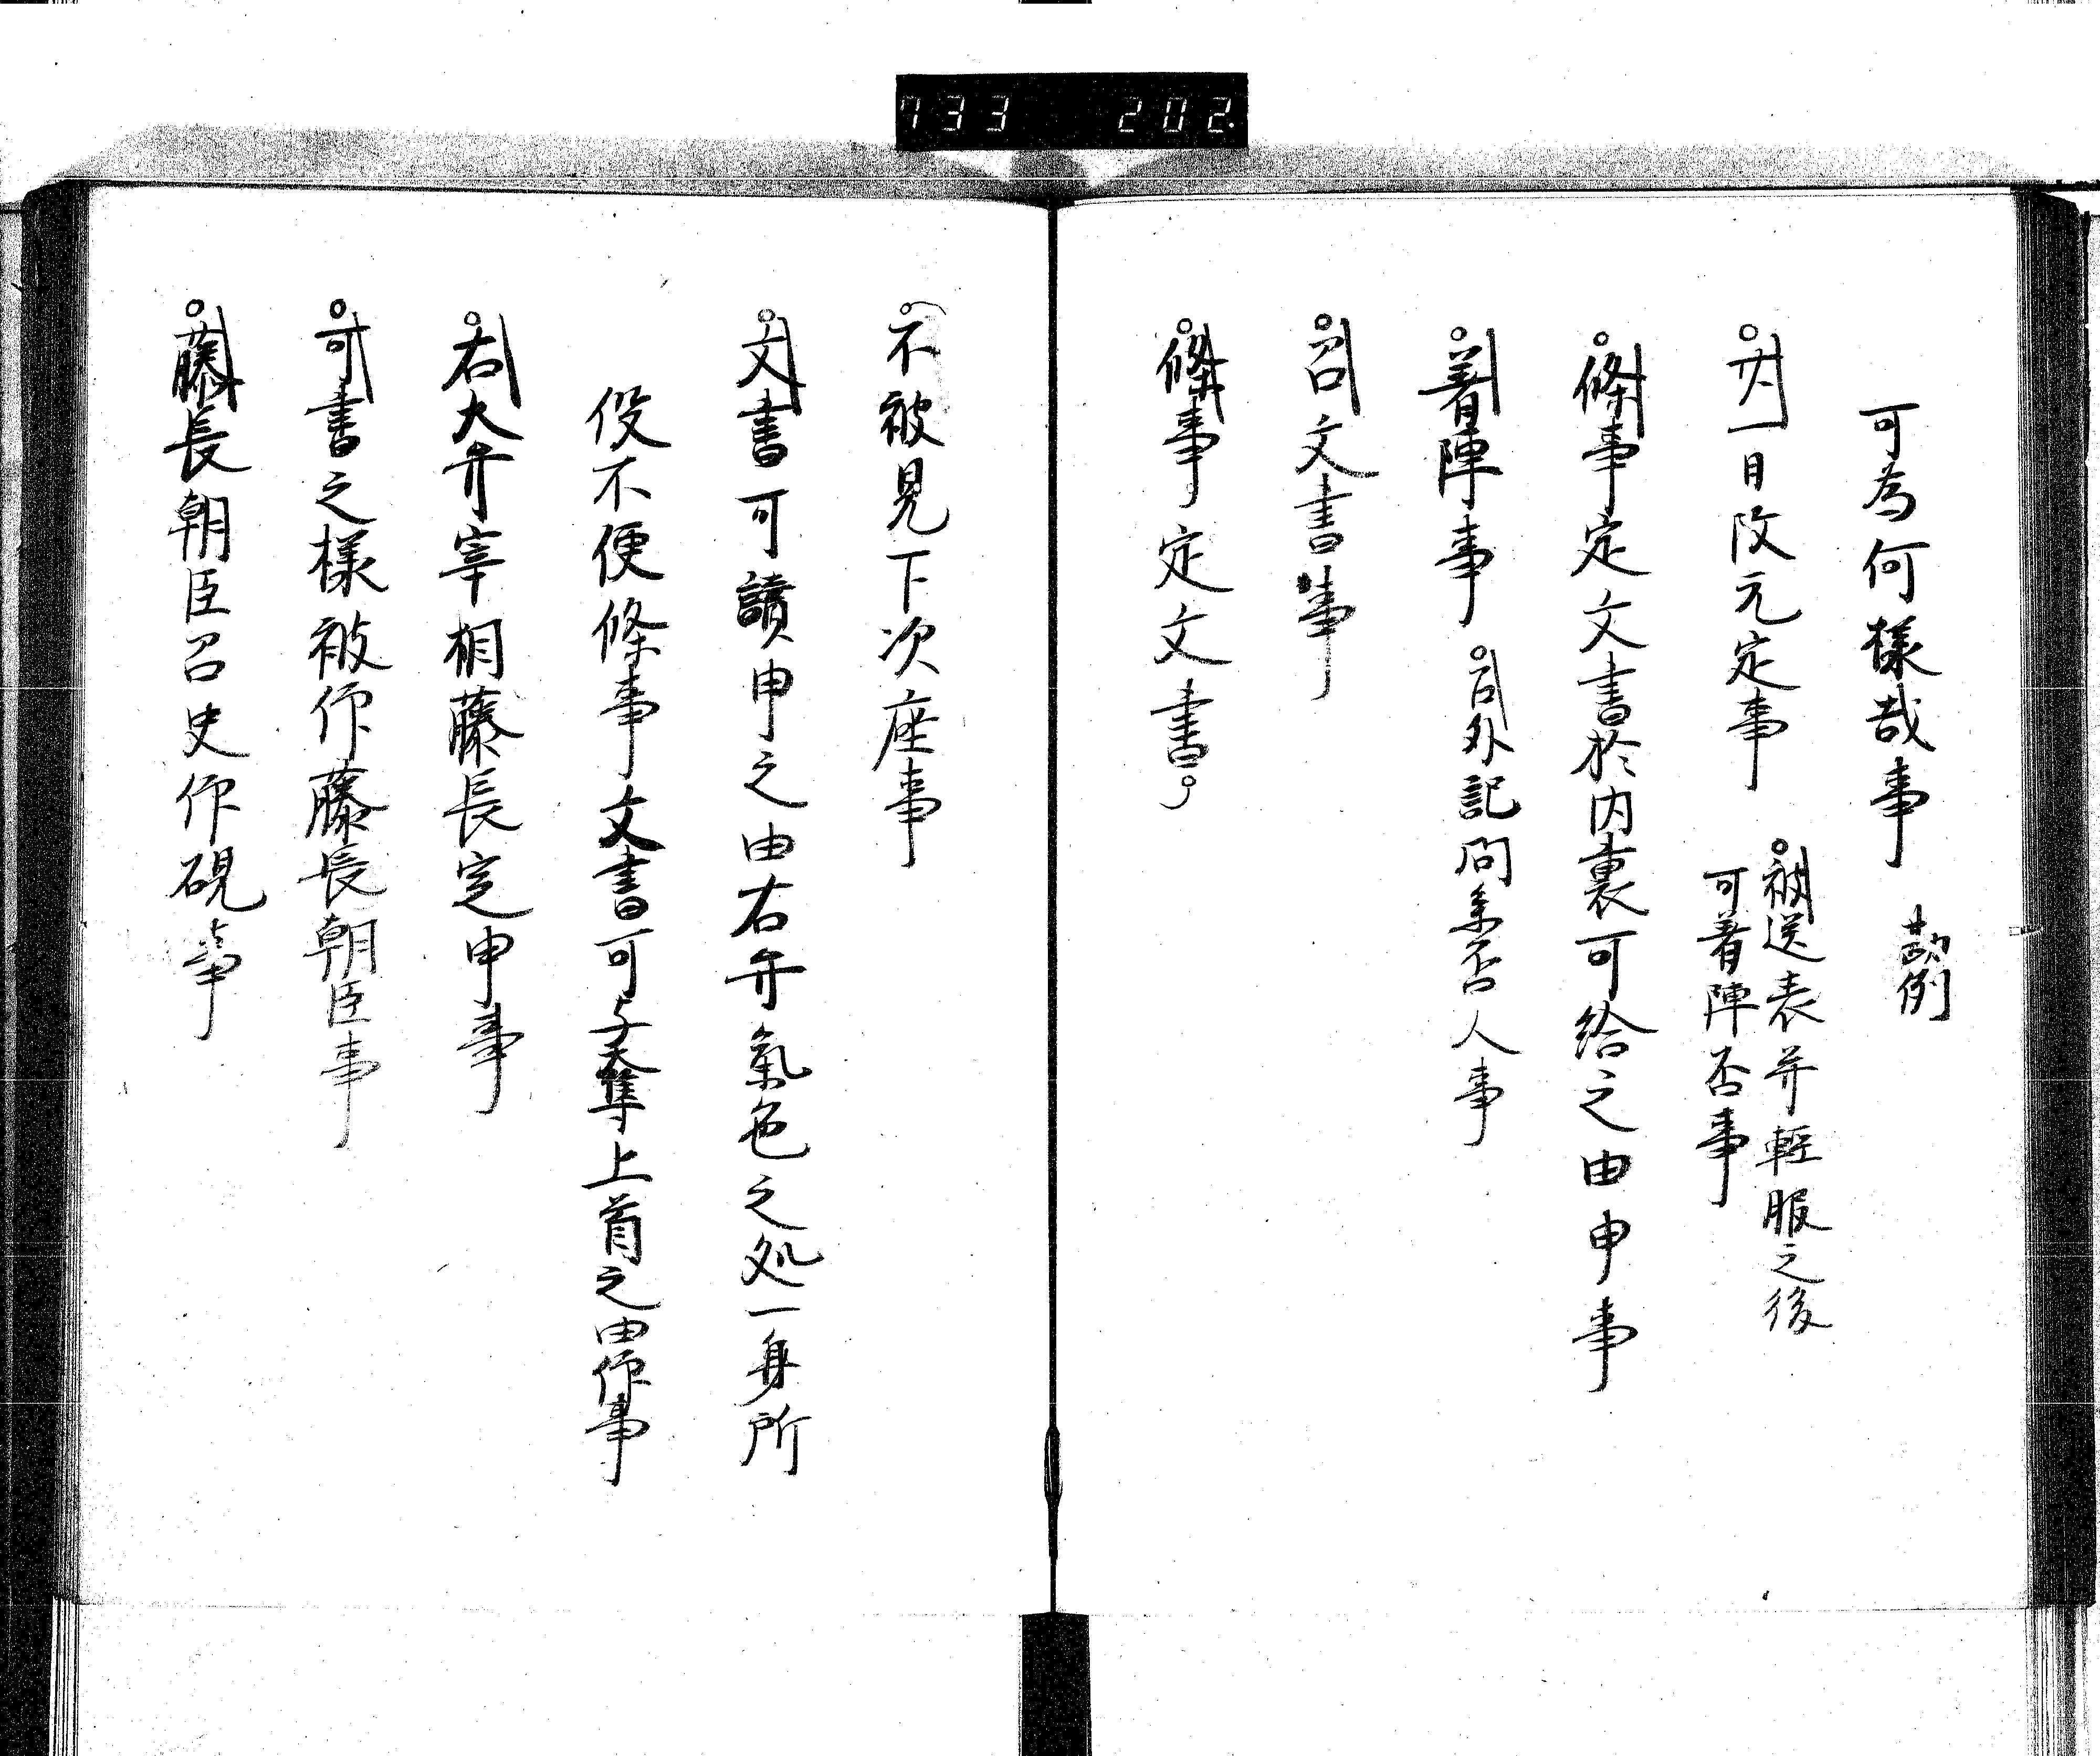 733 202.
可為何様哉事 勘例
廿一日改元定事 被送表并軽服之後
可着陣否事
條事定文書於内裏可給之由申事
着陣事 召外記問参否人事
召文書事
條事定文書。
不被見下次座事
文書可讀申之由右弁氣色之処一身所
役不便條事文書可与奪上首之由仰事
右大弁宰相藤長定申事
可書之様被仰藤長朝臣事
藤長朝臣召史仰硯事